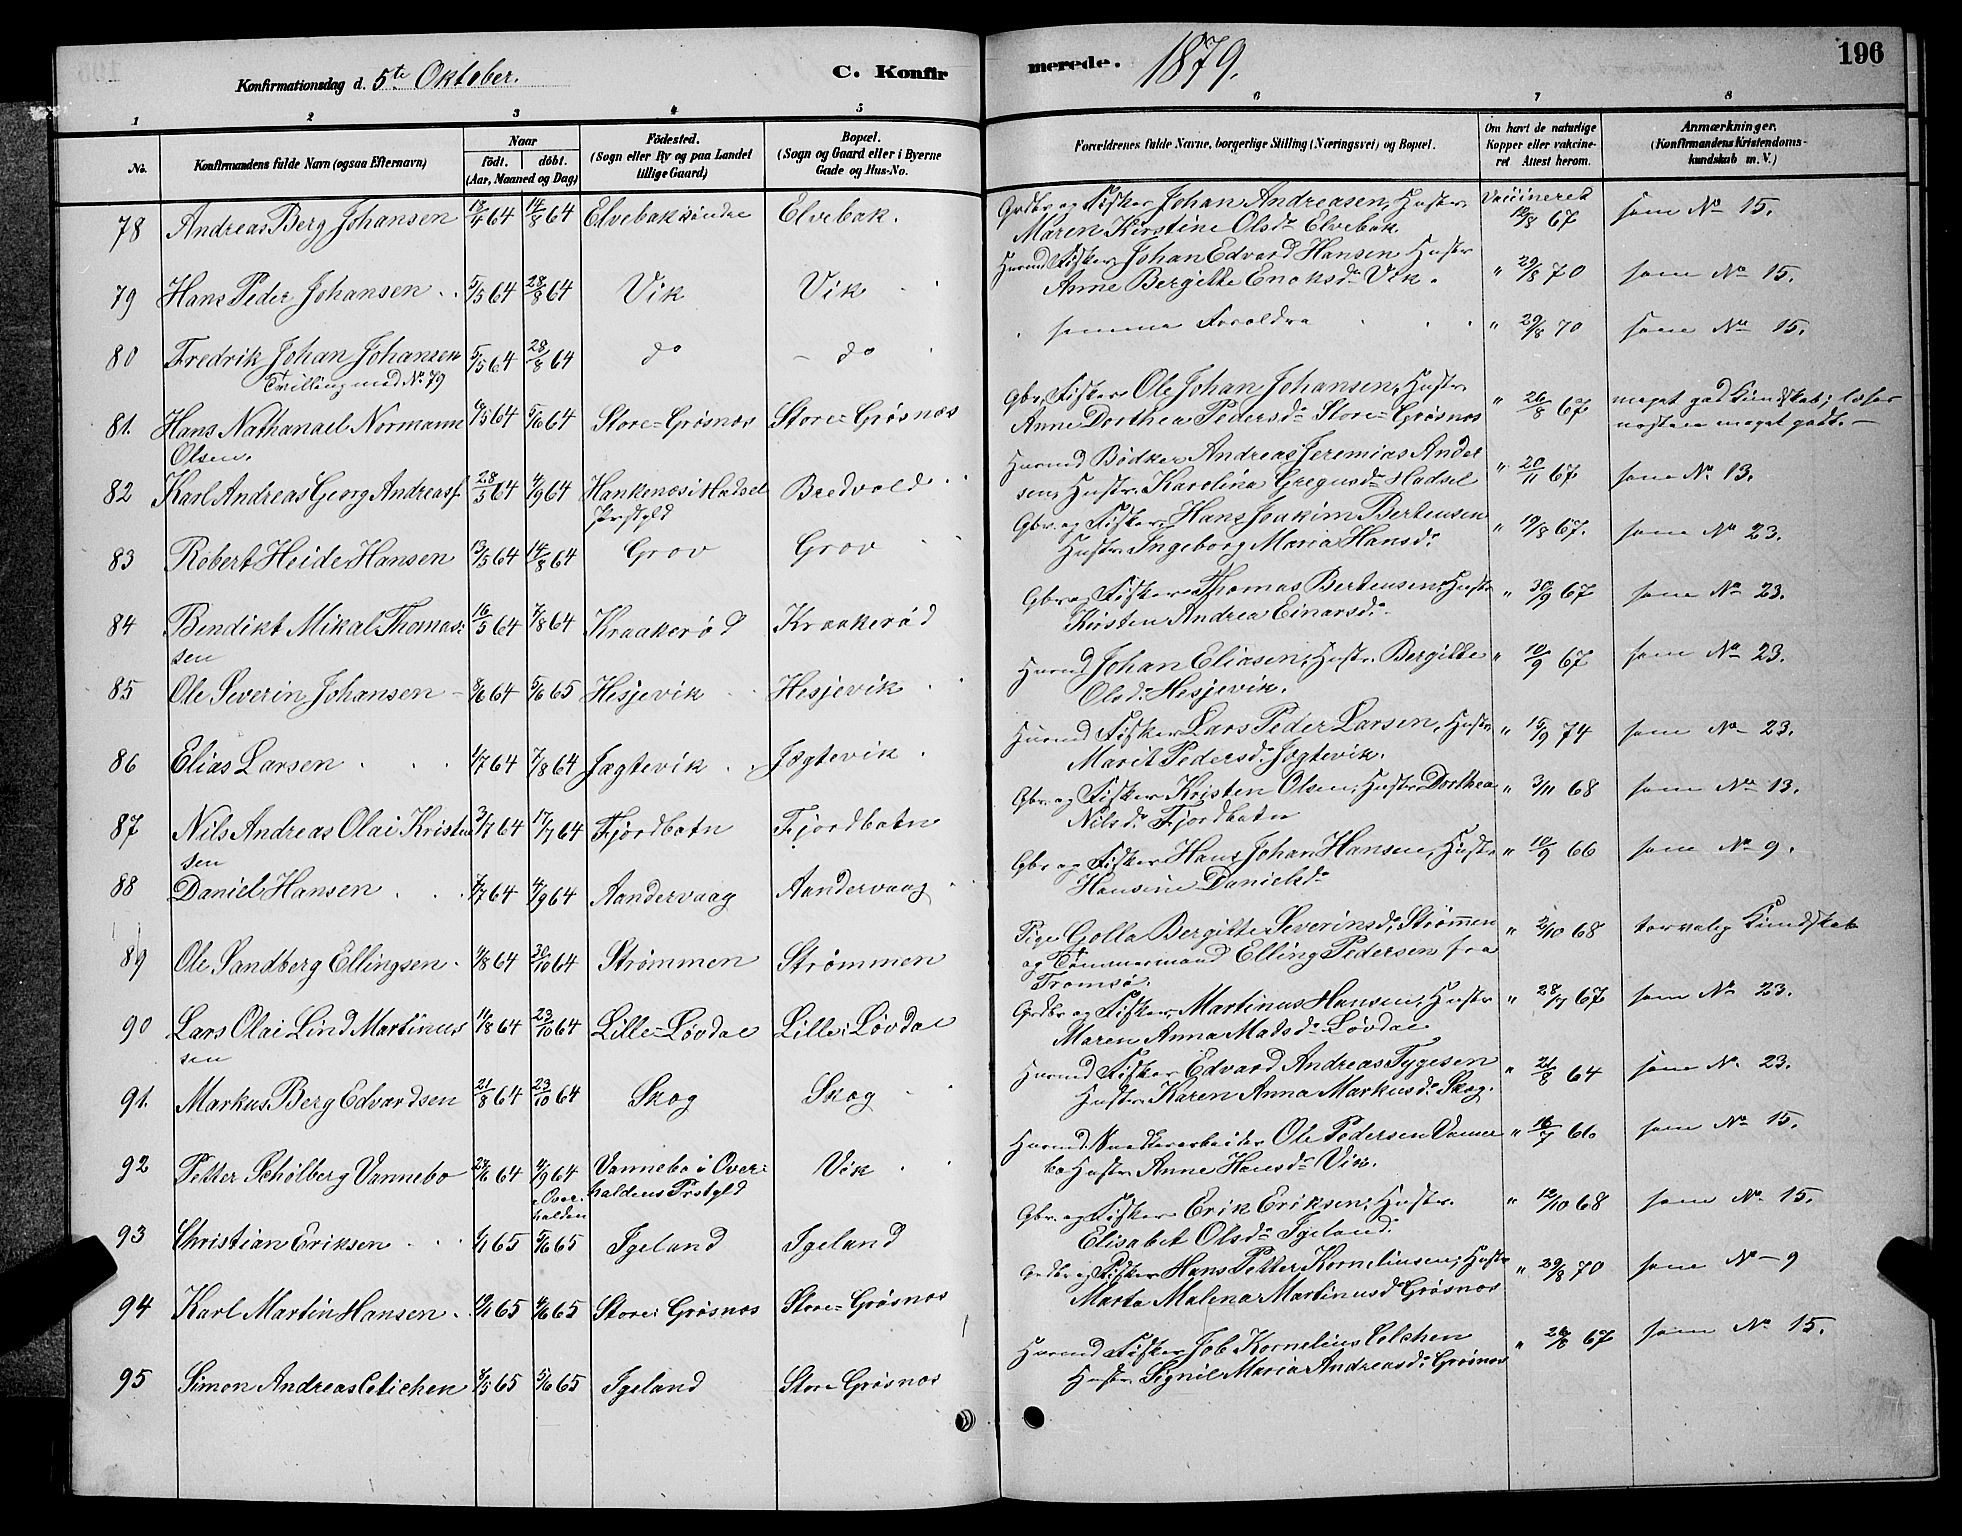 Konfirmationsdag d. 5te Oktober.
C. Konfirmerede. 1879.
196
1 2 3 4 5 6 7 8
No.
Konfirmandens fulde Navn (ogsaa Efternavn)
Naar
födt. döbt.
(Aar, Maaned og Dag)
Födested.
(Sogn eller By og paa Landet
tillige Gaard)
Bopæl.
(Sogn og Gaard eller i Byerne
Gade og Hus-No.
Forældrenes fulde Navne, borgerlige Stilling (Næringsvei) og Bopæl.
Om havt de naturlige
Kopper eller vakcine-
ret Attest herom.
Anmærkninger.
(Konfirmandens Kristendoms-
kundskab m. V.)
78 Andreas Berg Johansen 64 14/8 64 Elvebak søndre Elvebak. Grdbr. og Fisker Johan Andreasen, Hustr. Vaccineret 12/8 67 som No 15.
Maren Kirstine Olsdr Elvebak
79 Hans Peder Johansen 5/5 64 28/8 64 Vik Vik Husmd Fisker Johan Edvard Hansen Hustr " 29/8 70 som No 15.
Anne Bergitte Enoksdr Vik.
80 Fredrik Johan Johansen 5/5 64 28/8 64 do do samme Forældre " 29/8 70 som No 15.
Tvilling med No 79
81. Hans Nathanael Normann 6/5 64 5/6 64 Store=Grøsnæs Store=Grøsnæs Gbr. Fisker Ole Johan Johansen, Hustr. " 26/8 67 meget god Kundskab; læser
Olsen. Anne Dorthea Pedersdr Store=Grøsnæs næsten meget godt.
82 Karl Andreas Georg Andreass. 28/5 64 4/9 64 Hankenæs i Hadsel Bredvold Husmd Bødker Andreas Jeremias Andersen, " 20/11 67 som No 13.
Prstgld Hustr. Karelina Gregusdr Hadsel
83 Robert Heide Hansen 13/5 64 14/8 64 Grov Grov Gbr. og Fisker Hans Joakim Bertensen " 19/8 67. som No 23.
Hustr. Ingeborg Maria Hansdr
84 Bendikt Mikal Thomas- 16/5 64 7/8 64 Kraakerød Kraakerød Gbr. og Fisker Thomas Bertensen, Hustr " 30/9 67 som No 23.
sen Kirsten Andrea Einarsdr
85 Ole Severin Johansen 8/6 64 5/6 65 Hesjevik Hesjevik Husmd Johan Eliasen, Hustr. Bergitte " 10/9 67 som No 23.
Olsdr Hesjevik.
86 Elias Larsen 64 7/8 64 Jægtevik Jægtevik Husmd Fisker Lars Peder Larsen, Hustr. " 15/9 74 som No 23.
Marit Pedersdr Jægtevik.
87 Nils Andreas Olai Kristen 3/7 64 17/7 64 Fjordbotn Fjordbotn Gbr. og Fisker Kristen Olsen, Hustr. Dorthea " 3/11 68 som No 13.
sen Nilsdr Fjordbotn
88 Daniel Hansen 7/7 64 4/9 64 Aandervaag Aandervaag Gbr og Fisker Hans Johan Hansen, Hustr. " 10/9 66 som No 9.
Hansine Danielsdr
89 Ole Sandberg Ellingsen 4/8 64 30/10 64 Strømmen Strømmen Pige Golla Bergitte Severinsdr, Strømmen " 2/10 68 torvelig Kundskab
og Tømmermand Elling Pedersen fra
Tromsø.
90 Lars Olai Lind Martinus 11/8 64 23/10 64 Lille=Løvdal Lille=Løvdal Grdbr. og Fisker Martinus Hansen, Hustr. " 28/7 67 som No 23.
sen Maren Anna Madsdr Løvdal
91. Markus Berg Edvardsen 21/8 64 23/10 64 Skog Skog Husmd Fisker Edvard Andreas Tygesen " 21/8 64 som No. 23.
Hustr. Karen Anna Markusdr Skog.
92 Petter Schølberg Vannebo 64 4/9 64 Vannebo i Over- Vik Husmd. Snedkerarbeider Ole Pedersen Vanne " 16/7 66 som No 15.
i Over-halden haldens Prstgld bo Hustr. Anne Hansdr Vik.
93 Christian Eriksen 65 5/6 65 Igeland Igeland Gbr. og Fisker Erik Eriksen, Hustr. " 12/10 68 som No 15.
Elisabet Olsdr Igeland.
94 Karl Martin Hansen 65 4/6 65 Store=Grøsnæs Store=Grøsnæs Grdbr og Fisker Hans Petter Kornelinsen, Hustr " 29/8 70 som No 9
Marta Malena Martinusd Grøsnæs
95 Simon Andreas Colichen 65 5/6 65 Igeland Store Grøsnæs Husmd Fisker Job Kornelius Colchen " 67 som No 15.
Hustr. Signil Maria Andreasdr Grøsnæs